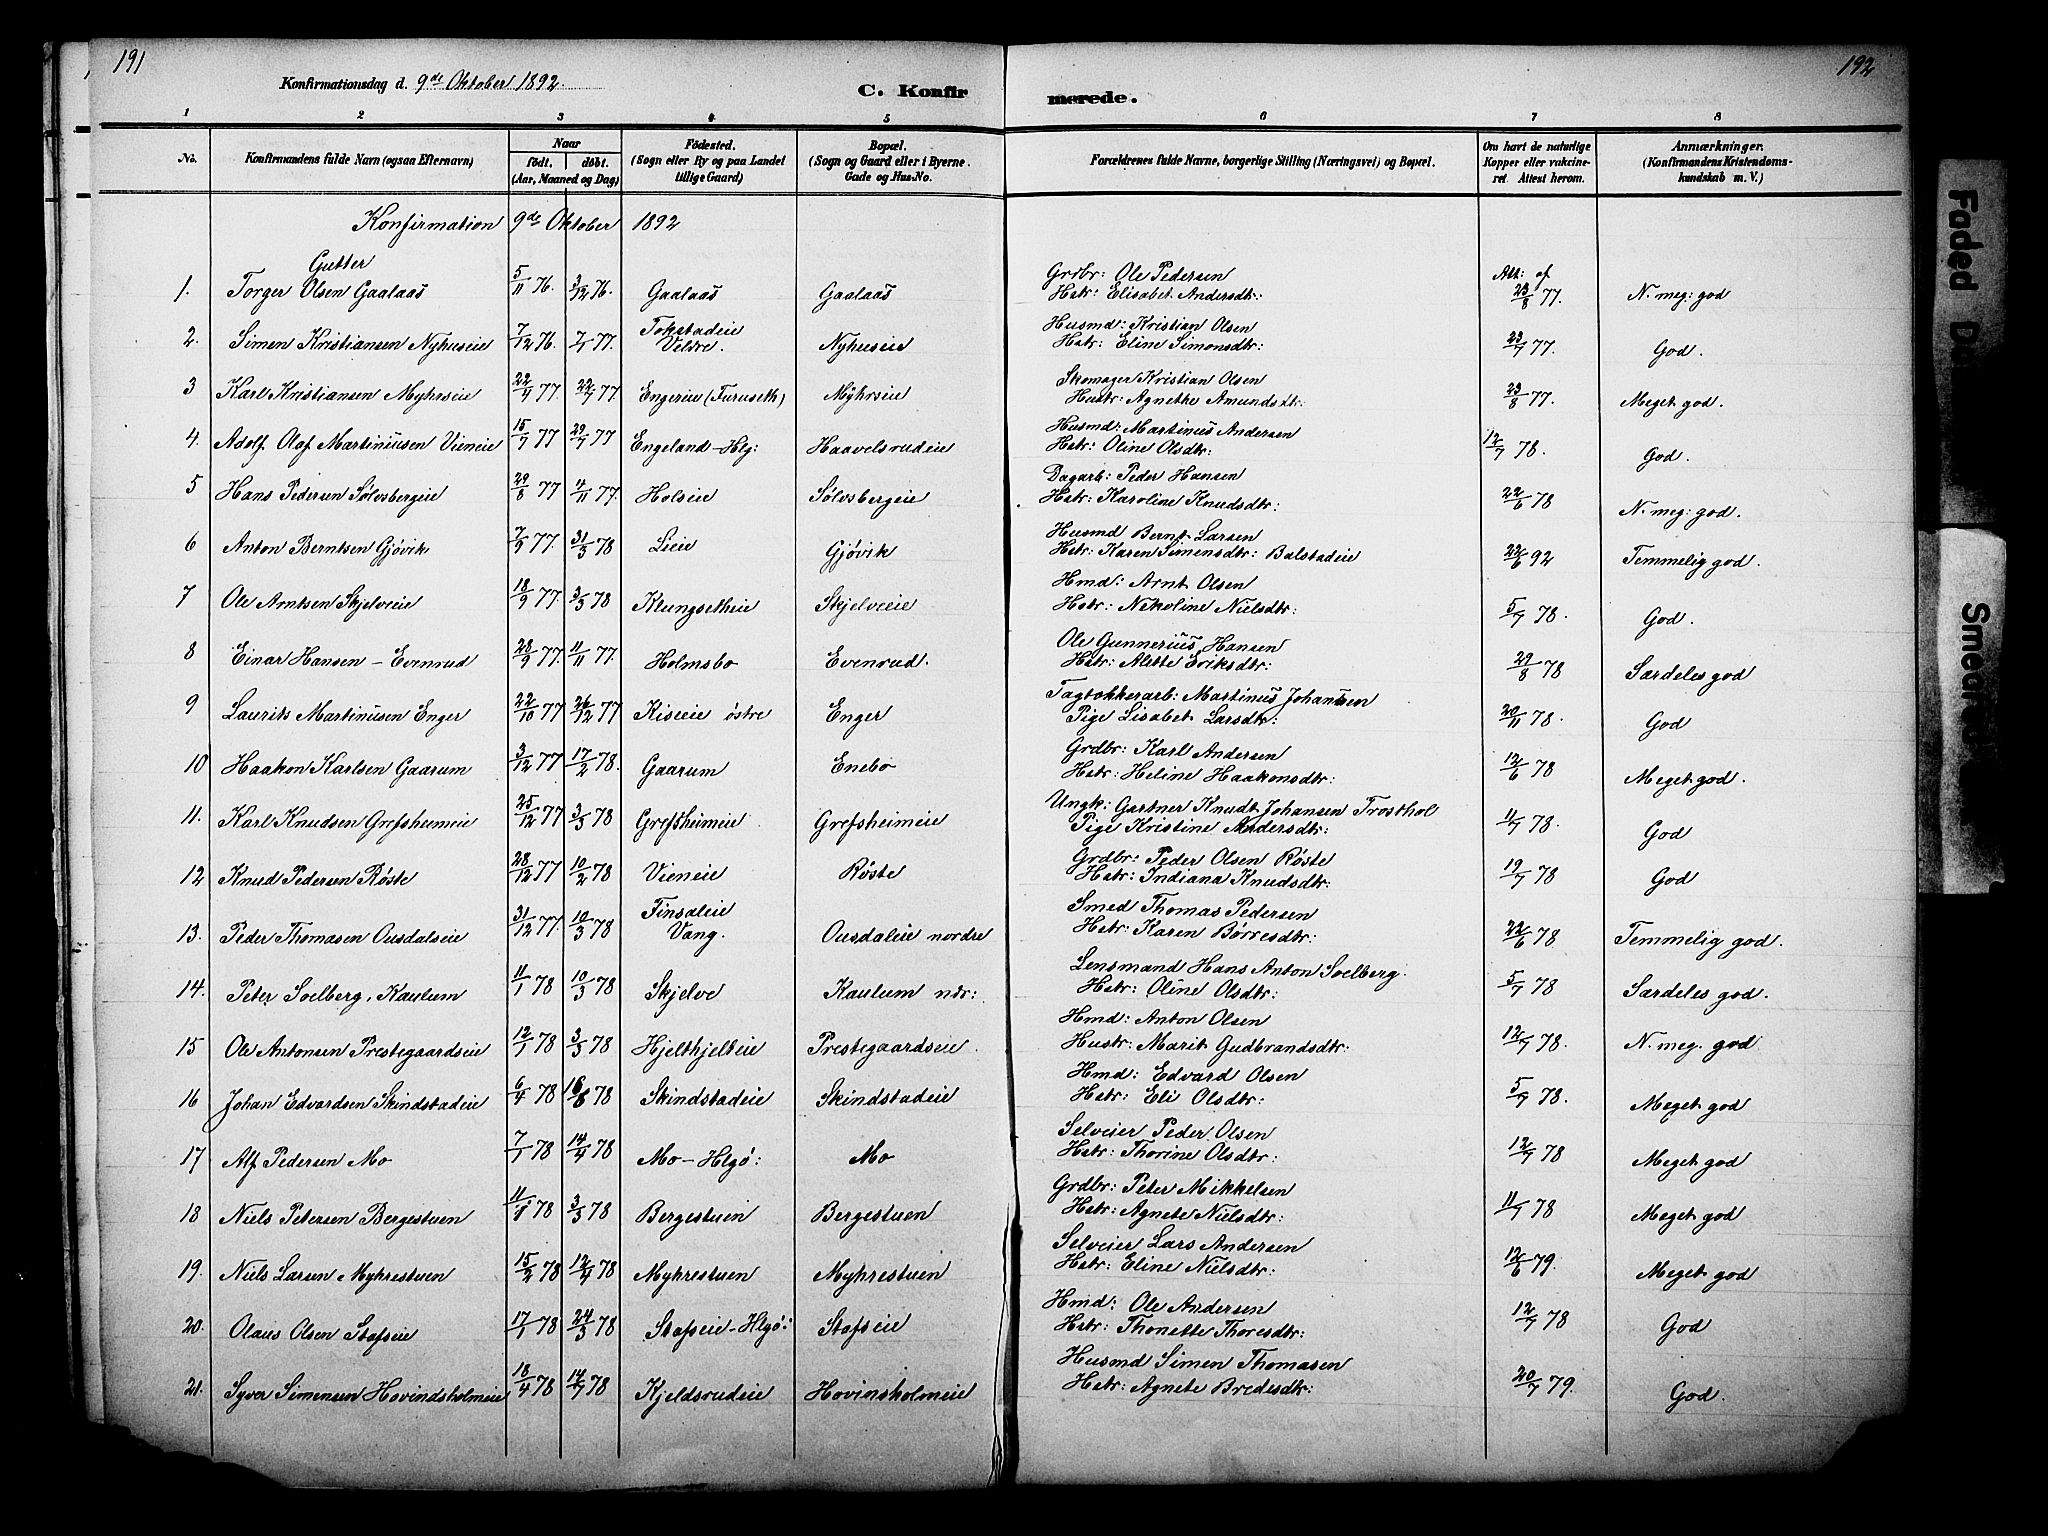 191
192
Konfirmationsdag d. 9de Oktober 1892.
C. Konfir
merede.
1 2 3 4 5 6 7 8
No. Konfirmandens fulde Navn (ogsaa Efternavn) Naar født. døbt. (Aar, Maaned og Dag) Fødested. (Sogn eller By og paa Landet tillige Gaard) Bopæl. (Sogn og Gaard eller i Byerne. Gade og Hus-No. Forældrenes fulde Navne, borgerlige Stilling (Næringsvei) og Bopæl. Om havt de naturlige Kopper eller vakcineret Attest herom. Anmærkninger. (Konfirmandens Kristendomskundskab m. V.)
Konfirmation 9de Oktober 1892
Gutter
1. Torger Olsen Gaalaas 5/11 76. 3/12 76. Gaalaas Gaalaas Grdbr: Ole Pedersen Hstr: Elisabet Andersdtr: Att: af 23/8 77. N. meg: god
2. Simen Kristiansen Nyhuseie 7/12 76. 7/1 77. Tokstadeie Veldre. Nyhuseie Husmd: Kristian Olsen Hstr: Eline Simonsdtr: 23/7 77. God.
3 Karl Kristiansen Myhrseie 22/4 77. 22/7 77 Engereie (Furuseth) Myhrseie Skomager Kristian Olsen Hustr: Agnethe Amundsdtr: 23/8 77. Meget god.
4. Adolf Olaf Martiniusen Vieneie 15/7 77 29/7 77 Engeland-Hlg: Haavelsrudeie Husmd: Martinus Andersen Hstr: Oline Olsdtr: 12/7 78. God.
5 Hans Pedersen Sølvsbergeie 29/8 77 4/11 77. Holseie Sølvsbergeie Dagarb: Peder Hansen Hstr: Karoline Knudsdtr: 22/6 78 N. meg: god.
6 Anton Berntsen Gjøvik 7/9 77. 31/3 78 Lieie Gjøvik Husmd Bernt Larsen Hstr: Karen Simensdtr: Balstadeie 22/6 92 Temmelig god.
7 Ole Arntsen Skjelveie 18/9 77. 3/3 78 Klungsetheie Skjelveie Hmd: Arnt Olsen Hstr: Nikoline Nielsdtr: 5/7 78. God.
8 Einar Hansen - Evenrud 28/9 77. 11/11 77. Holmsbo Evenrud. Ole Gunnerius Hansen Hstr: Alette Eriksdtr: 29/8 78 Særdeles god
9 Laurits Martinusen Enger 22/10 77 26/12 77 Kiseie østre Enger Tagtækkerarb: Martinus Johansen Pige Lisabet Larsdtr: 20/11 78. God
10 Haakon Karlsen Gaarum 3/12 77 17/2 78. Gaarum Enebo Grdbr: Karl Andersen Hstr: Heline Haakonsdtr: 12/6 78 Meget god.
11. Karl Knudsen Grefsheimeie 25/12 77 3/3 78 Grefsheimeie Grefsheimeie Ungk: Gartner Knudt Johansen Trosthol Pige Kristine Andersdtr: 11/7 78. God
12 Knud Pedersen Røste 28/12 77 10/2 78 Vieneie Røste Grdbr: Peder Olsen Røste Hstr: Indiana Knudsdtr: 19/7 78 God
13. Peder Thomasen Ousdaleie 31/12 77. 10/3 78 Finsaleie Vang. Ousdaleie nordre Smed Thomas Pedersen Hstr: Karen Børresdtr: 22/6 78 Temmelig god.
14. Peter Soelberg, Kaulum 11/1 78 10/3 78 Skjelve Kaulum ndr: Lensmand Hans Anton Soelberg. Hstr: Oline Olsdtr: 5/7 78 Særdeles god.
15 Ole Antonsen Prestegaardseie 12/1 78 3/3 78 Hjelthjelteie Prestegaardseie Hmd: Anton Olsen Hustr: Marit Gudbrandsdtr: 12/7 78. N. meg. god
16 Johan Edvardsen Skindstadeie 6/4 78 16/6 78 Skindstadeie Skindstadeie Hmd: Edvard Olsen Hstr: Eli Olsdtr: 5/7 78. Meget god
17 Alf Pedersen Mo 7/1 78 14/4 78 Mo-Hlgø: Mo Selveier Peder Olsen Hstr: Thorine Olsdtr: 12/7 78 Meget god
18 Niels Petersen Bergestuen 11/1 78 3/3 78 Bergestuen Bergestuen Grdbr: Peter Mikkelsen Hstr: Agnete Nielsdtr: 11/7 78 Meget god
19. Niels Larsen Myhrestuen 15/2 78 12/4 78 Myhrestuen Myhrestuen Selveier Lars Andersen Hstr: Eline Nielsdtr: 12/6 79. Meget god
20. Olaus Olsen Stafseie 17/1 78 24/3 78 Stafseie-Hlgø: Stafseie Hmd: Ole Andersen Hstr: Thonette Thoresdtr: 12/7 78 God
21. Syver Simensen Hovindsholmeie 18/4 78 14/7 78 Kjeldsrudeie Hovinsholmeie Husmd Simen Thomasen Hstr: Agnete Bredesdtr: 20/7 79. God.
Faded
Smeared